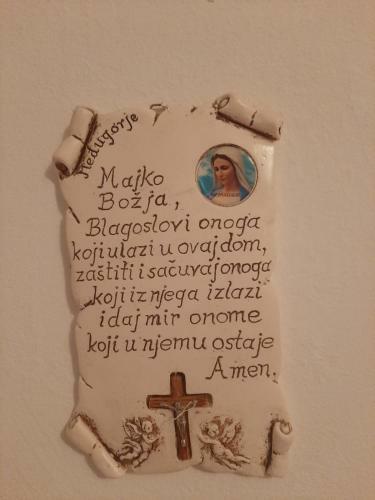 Međugorje
Majko
Božja,
Blagoslovi onoga
koji ulazi u ovaj dom,
zaštiti i sačuvaj onoga
koji iz njega izlazi
i daj mir onome
koji u njemu ostaje
Amen.